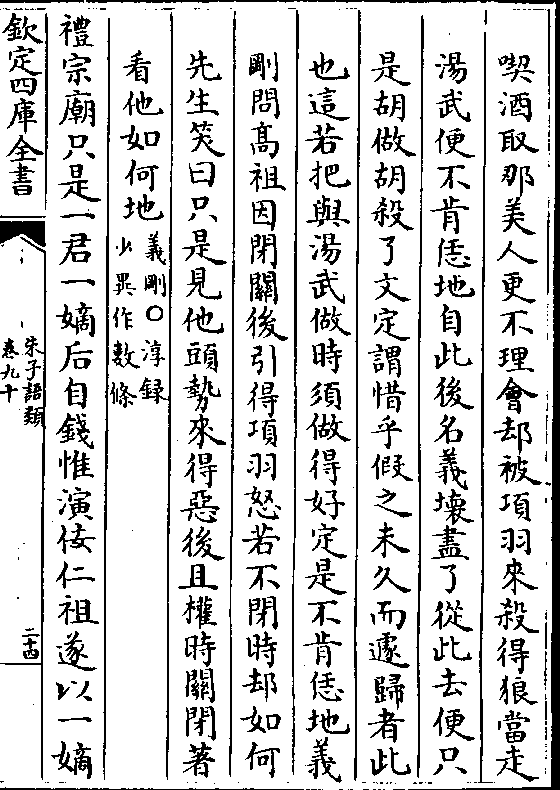 喫酒取那美人更不理會却被項羽來殺得狼當走
湯武便不肯恁地自此後名義壞盡了從此去便只
是胡做胡殺了文定謂惜乎假之未久而遽歸者此
也這若把與湯武做時須做得好定是不肯恁地義
剛問髙祖因閉關後引得項羽怒若不閉時却如何
先生笑曰只是見他頭勢來得惡後且權時關閉著
看他如何地義剛○淳録少異作數條
禮宗廟只是一君一嫡后自錢惟演佞仁祖遂以一嫡
欽定四庫全書
朱子語類
卷九十
二十四